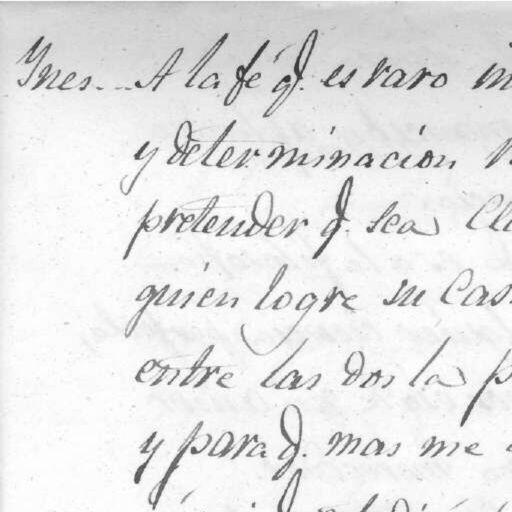 Ynes.. A la fé q.e es raro in
y determinacion
pretender q.e sea Cl
quien logre su Cas
entre las dos la p
y para q.e mas me